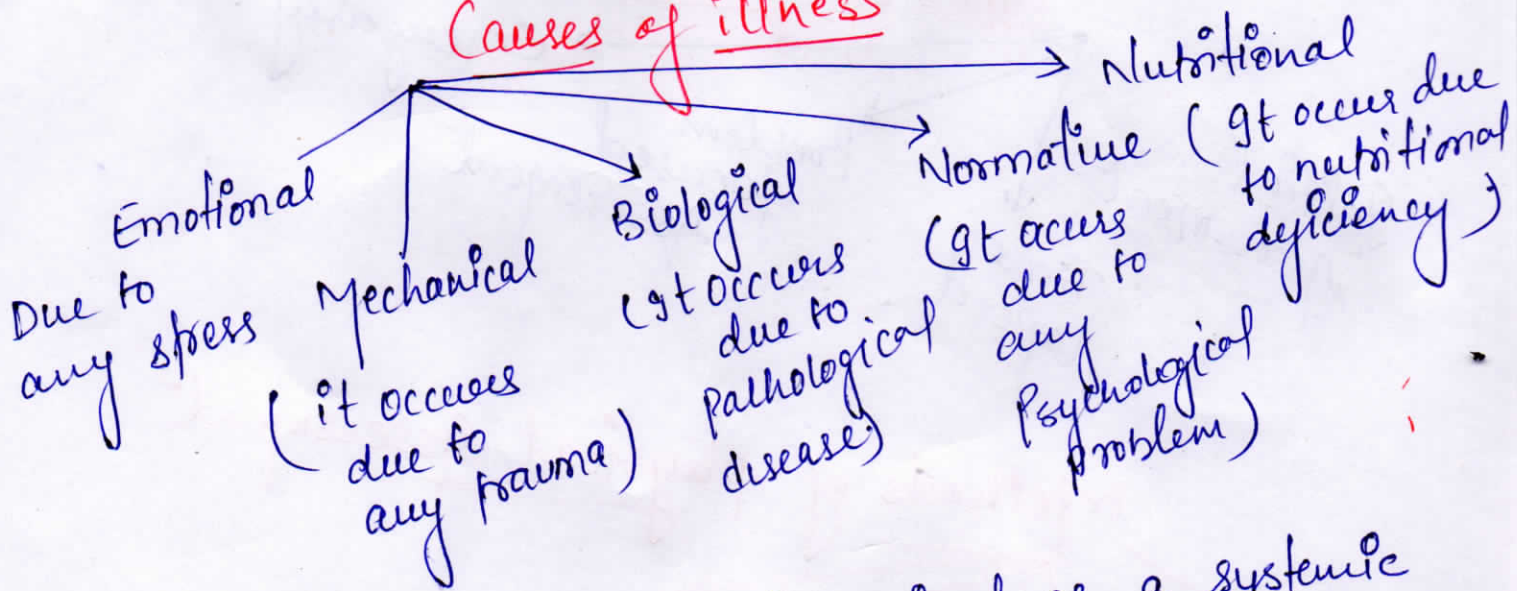 Causes of illness
Emotional
Due to
any stress
Mechanical
(it occurs
due to
any trauma)
Biological
(It occurs
due to
pathological
disease)
Normative
(It acurs
due to
any
Psychological
problem)
Nutritional
(It occur due
to nutritional
deficiency)
systemic